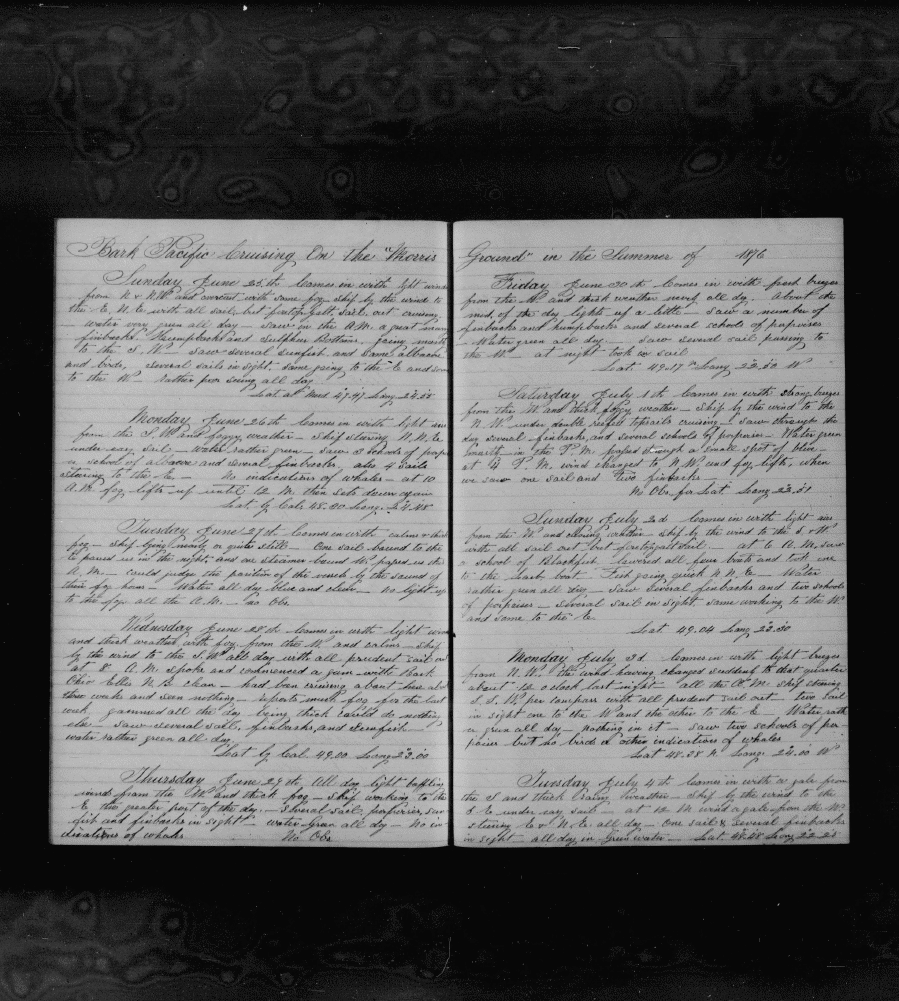 Bark Pacific Cruising On the "Morris
Sunday June 25th Comes in with light winds
from N & NW and current with some fog ship by the wind to
the E. N. E. with all sail but foretopgallt sails out cruising.
water very green all day — saw in the A.M. a great many
finbacks Humpbacks and Sulphur Bottoms going
to the S. W. — saw several sunfish and some albacore
and birds, several sails in sight, some going to the E and some
to the W. rather poor seeing all day
Lat at Merd 49.47 Long 24.55
Monday June 26th Comes in with light
from the S. W and foggy weather — ship steering N. N. E
under easy sail — water rather green — saw 3 schools of
a school of albacore and several finbacks. also 4 sails
steering to the E. — no indications of whales — at 10
A.M. fog lifts up until 12 M. then sets down again
Lat by Cal. 48.00 Long. 24.48
Tuesday June 27th Comes in with calms & thick
fog — ship lying nearly or quite still — One sail bound to the
E passed us in the night, and one steamer bound W. passed us the
A.M. — could judge the position of the vessel by the sound of
their fog horn — Water all day blue and clear — no light up
to the fog all the A.M. — no Obs
Wednesday June 28th Comes in with light winds
and thick weather with fog from the W. and calms — ship
by the wind to the S. W. all day with all prudent sail out
at 8 A.M. spoke and commenced a gam with Bark
Ohio Ellis N. B. clean — had been cruising about here about
three weeks and seen nothing — reports much fog for the last
week gammed all the day being thick could do nothing
else — saw several sail, finbacks and sunfish —
water rather green all day
Lat by Cal 49.00 Long 23.00
Thursday June 29th, All day light baffling
winds from the W and thick fog — ship working to the
E the greater part of the day. — several sail, porpoises, sun
fish and finbacks in sight — water green all day — No in
dications of whales No Obs
Ground" in the Summer of 1876
Friday June 30th Comes in with fresh breezes
from the W and thick weather nearly all day. About the
mid. of the day lights up a little — saw a number of
finbacks and humpbacks and several schools of porpoises
Water green all day — saw several sail passing to
the W. at night took in sail
Lat 49.17" Long 23.50 W
Saturday July 1st Comes in with strong breezes
from the W and thick foggy weather — Ship by the wind to the
N. W. under double reefed topsails cruising — saw through the
day several finbacks and several schools of porpoises — Water green
mostly — in the P.M. passed through a small spot of blue —
at 4 P.M. wind changed to N.W and fog lifts, when
we saw one sail and two finbacks —
No Obs for Lat Long 23.51
Sunday July 2d Comes in with light airs
from the W and weather — ship by the wind to the S. & W
with all sail out but foretopgallt sail — at 6 A.M. saw
a school of Blackfish lowered all four boats and got one
to the boat Fish going quick N. N. E — Water
rather green all day — Saw several finbacks and two schools
of porpoises — several sail in sight some working to the W
and some to the E
Lat 49.04 Long 23.30
Monday July 3d. Comes in with light breezes
from N. W. the wind having changed suddenly to that quarter
about 12 o'clock last night — all the A.M. ship steering
S. S. W. per compass with all prudent sail out two sail
in sight one to the W and the other to the E. Water rath
er green all day — nothing in it — saw two schools of por
poises but no birds or other indications of whales
Lat 48.38 N. Long. 24.00 W
Tuesday July 4th Comes in with a gale from
the S and thick rainy weather — ship by the wind to the
S E under easy sail — at 12 M wind a gale from the W
steering E & N. E. all day — One sail & several finbacks
in sight — all day in Green water — Lat 48.48 Long 22.25